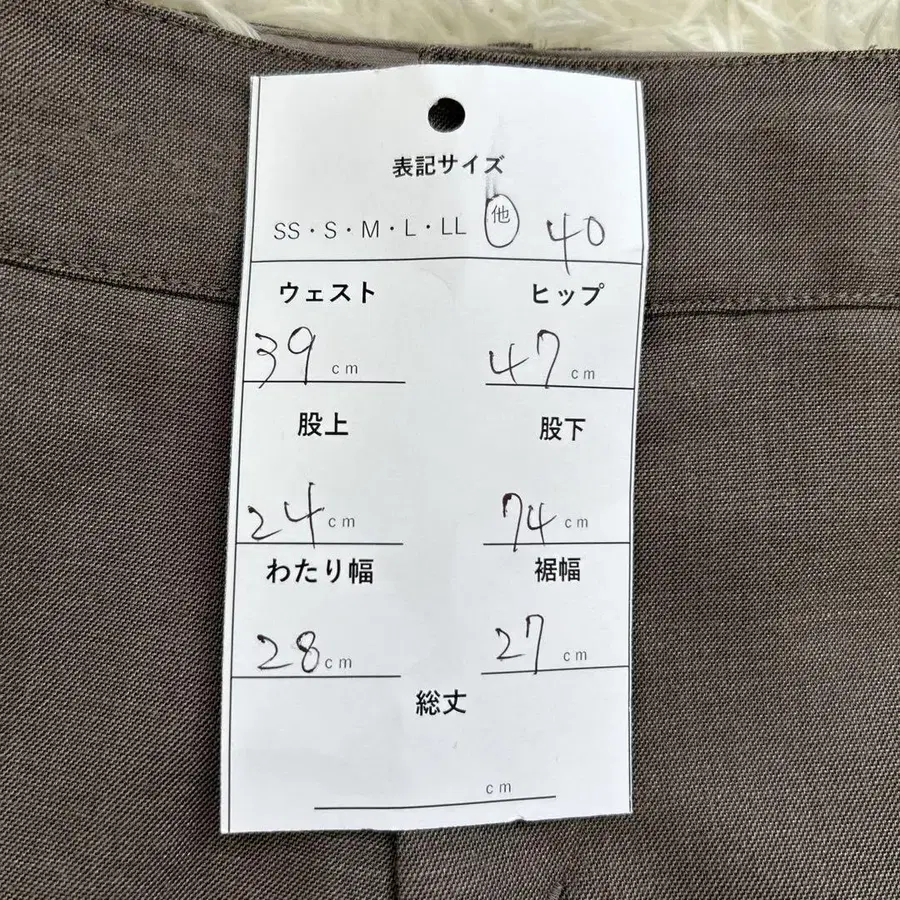 表記サイズ
SS・S・M・L・LL 他 40
ウェスト ヒップ
39 cm 47 cm
股上 股下
24 cm 74 cm
わたり幅 裾幅
28 cm 27 cm
総丈
cm